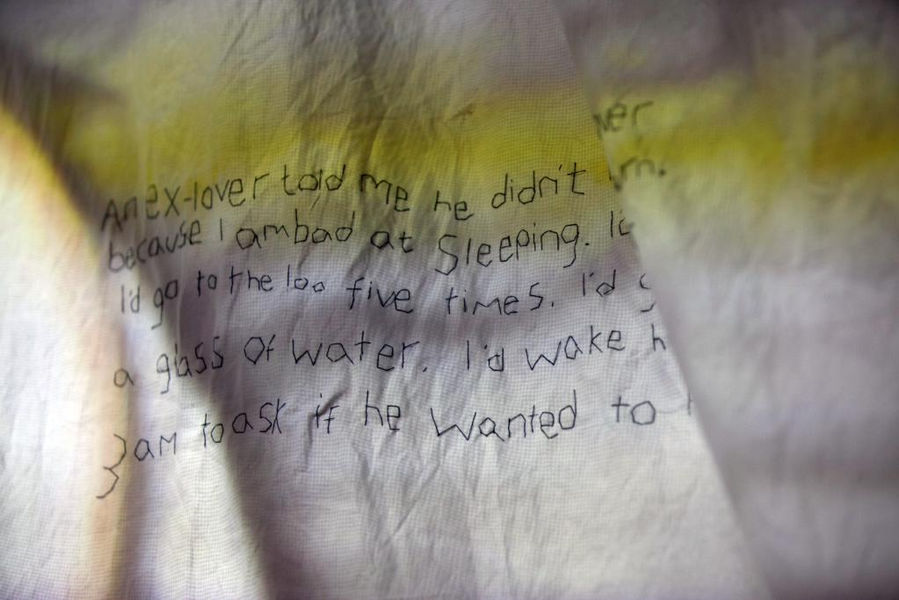 An ex-lover told me he didn't
because I am bad at Sleeping.
I'd go to the loo five times. I'd
a glass of water. I'd wake
3am to ask if he Wanted to